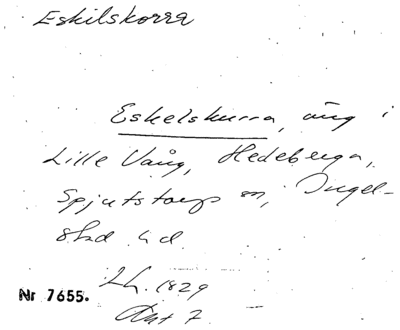 Eskilskorra
Eskelskurra, äng i
Lille Vång, Hedeberga,
Spjutstorps sn, Ingel-
stad hd.
Lh. 1829
Akt 7
Nr 7655.